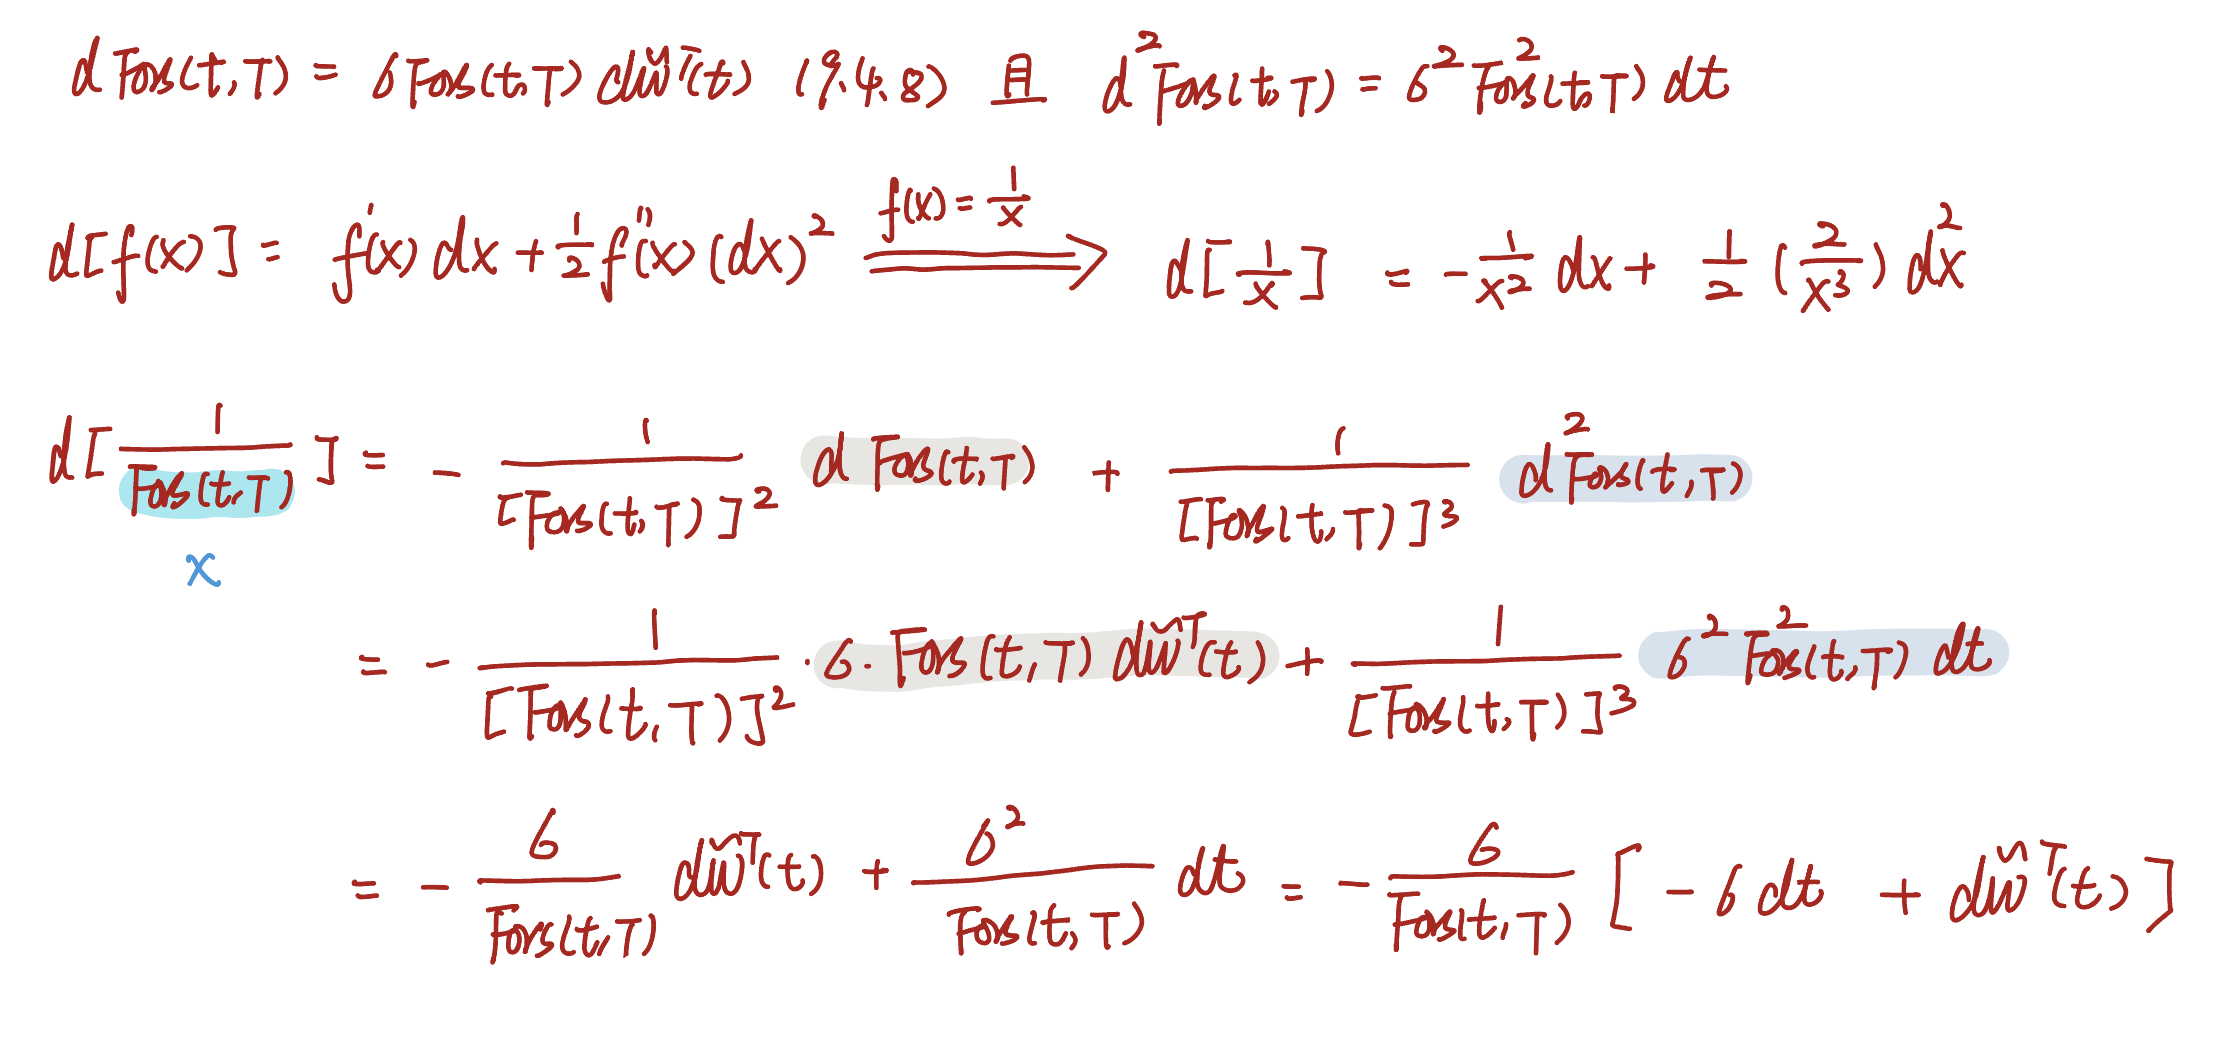 d For_S(t,T) = σ For_S(t,T) dW̃^T(t) (9.4.8) 且 d² For_S(t,T) = σ² For_S²(t,T) dt
d[f(x)] = f'(x) dx + 1/2 f''(x) (dx)² ⟹ f(x) = 1/x d[1/x] = - 1/x² dx + 1/2 (2/x³) d²x
d[1/For_S(t,T)] = - 1/[For_S(t,T)]² d For_S(t,T) + 1/[For_S(t,T)]³ d² For_S(t,T)
x
= - 1/[For_S(t,T)]² · σ · For_S(t,T) dW̃^T(t) + 1/[For_S(t,T)]³ σ² For_S²(t,T) dt
= - σ/For_S(t,T) dW̃^T(t) + σ²/For_S(t,T) dt = - σ/For_S(t,T) [ - σ dt + dW̃^T(t) ]